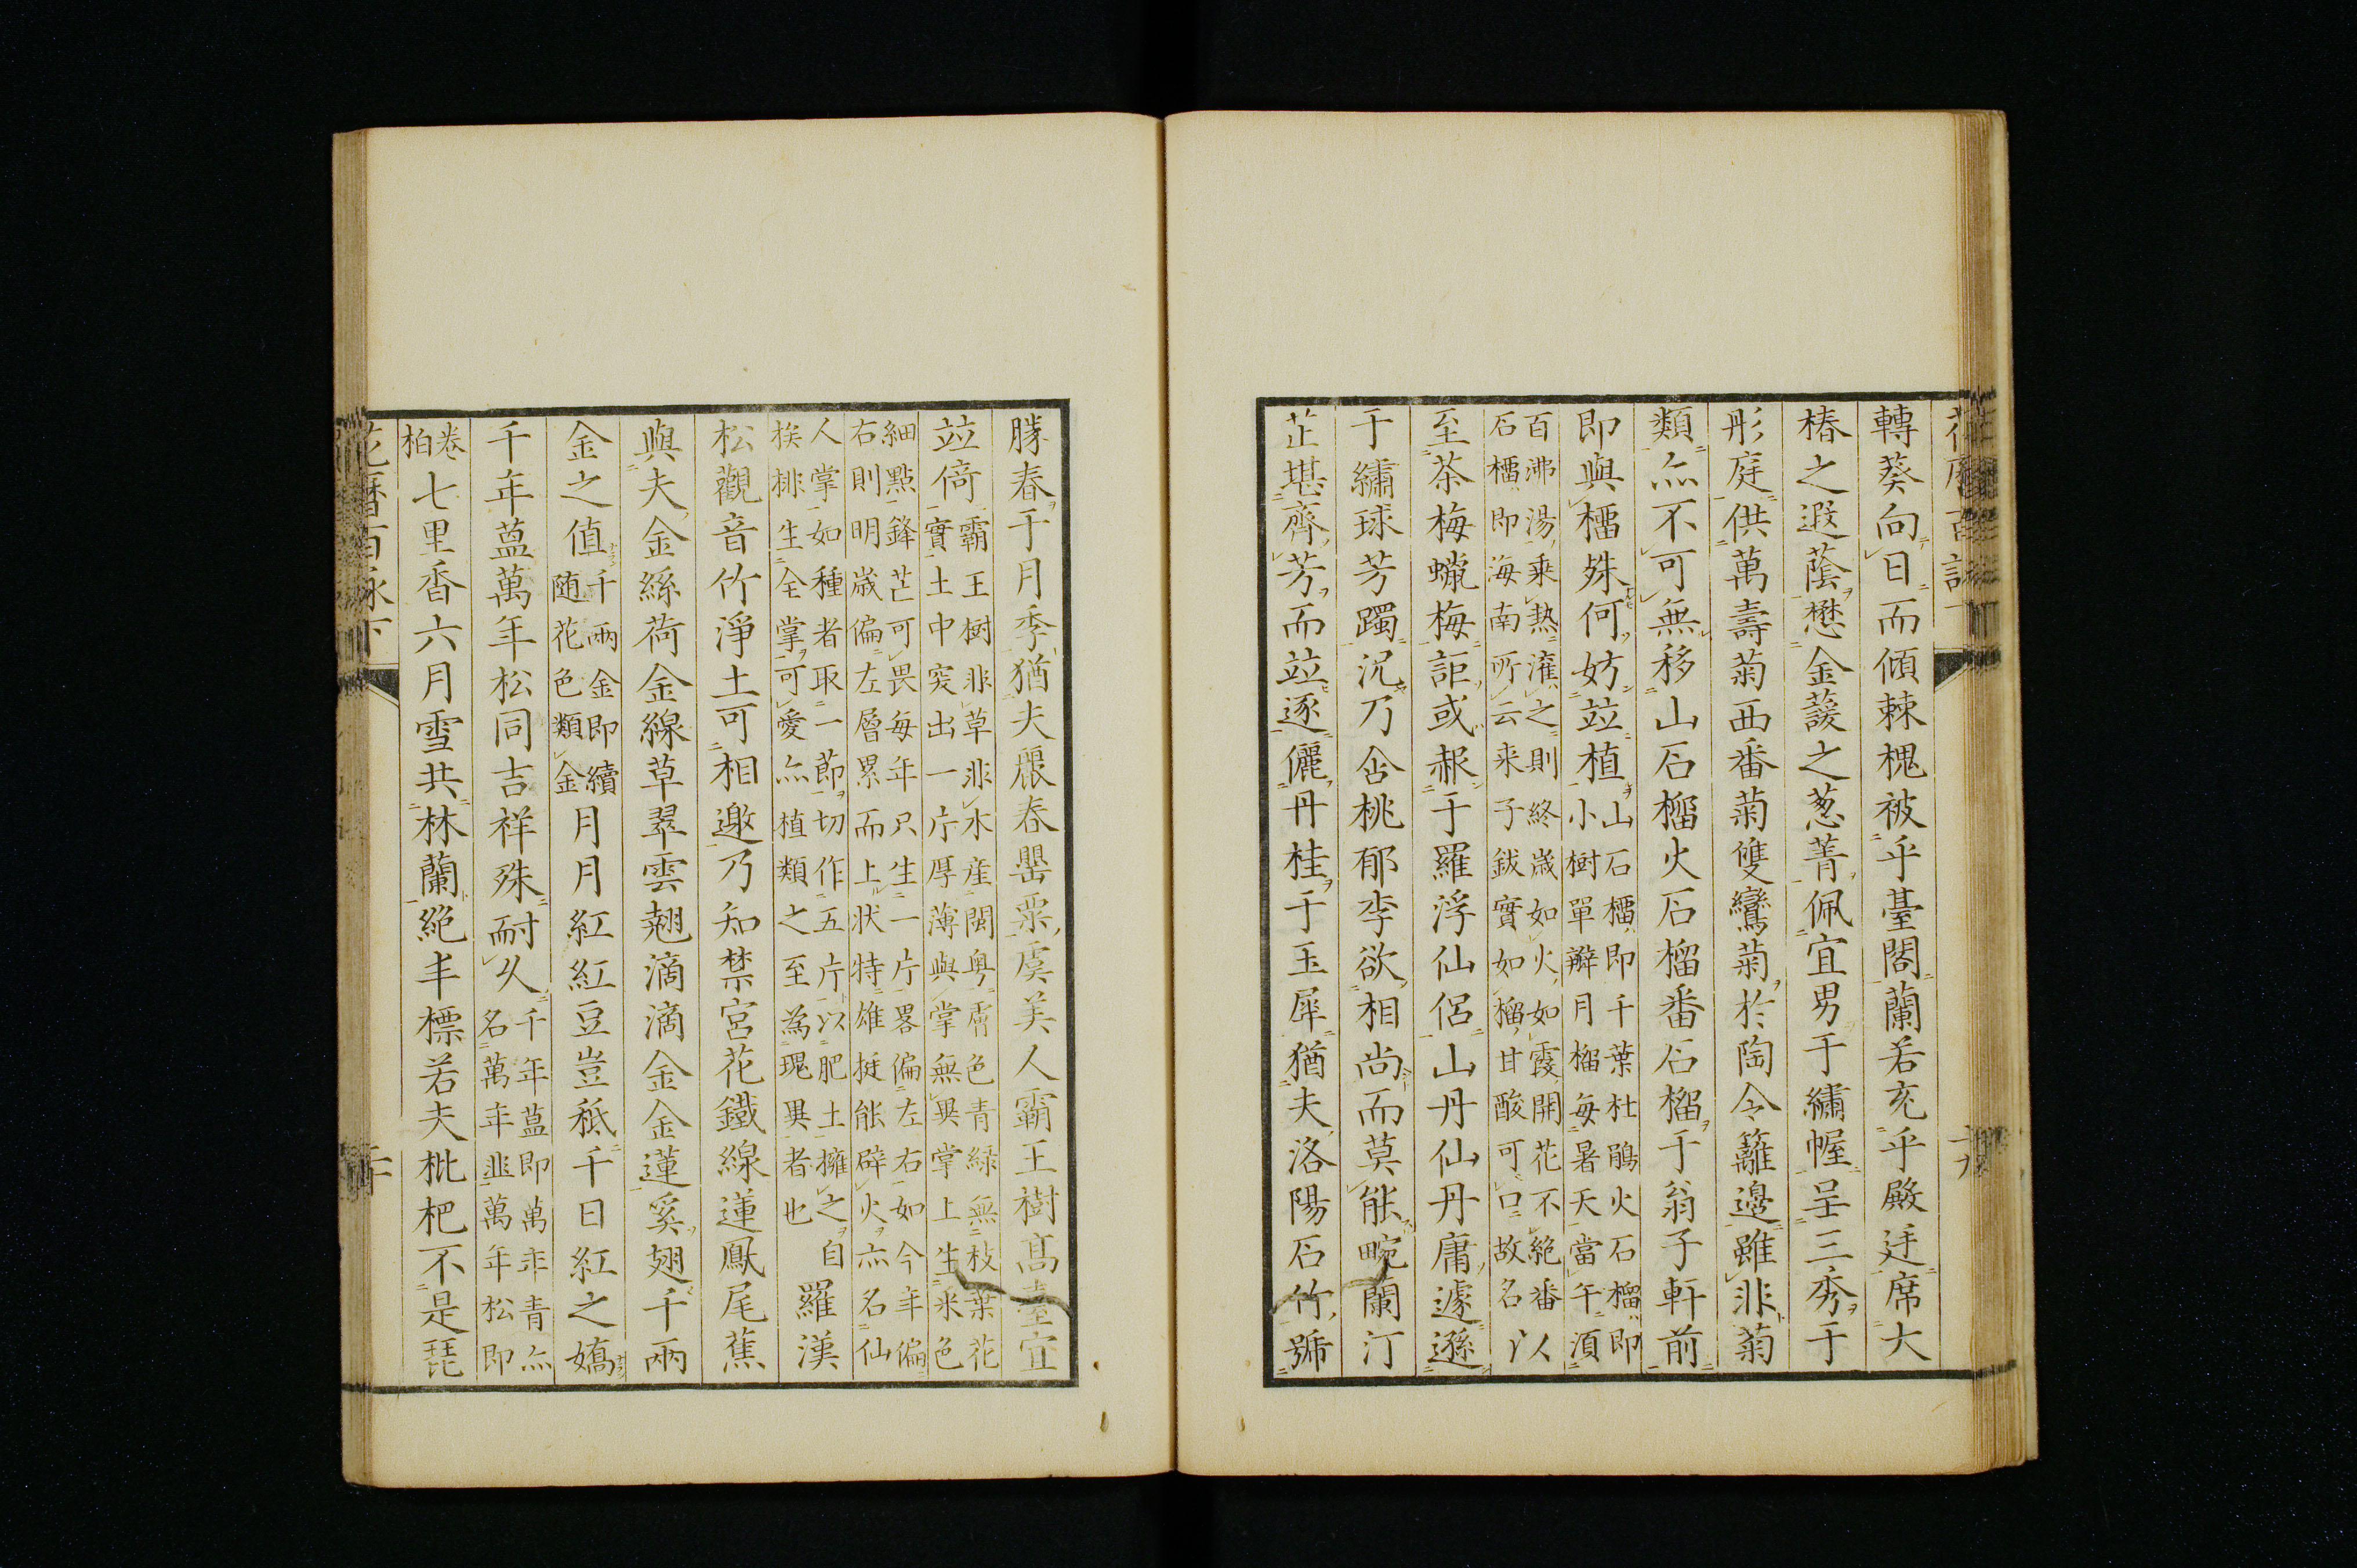 轉葵向日而傾棘槐被乎臺閣蘭若充乎殿廷席大
椿之遐蔭懋金蘐之葱菁佩宜男于繡幄呈三秀于
彤庭供萬壽菊西番菊雙鸞菊於陶令籬邊雖非菊
類亦不可無移山石榴火石榴番石榴于翁子軒前
即與橊殊何妨竝植
山石橊即千葉杜鵑火石榴即
小樹單瓣月榴每暑天當午湏
百沸湯乘熱潅之則終歳如火如霞開花不絶番以
石橊即海南所云来子鈸實如榴甘酸可口故名以
至茶梅蠟梅詎或赧于羅浮仙侣山丹仙丹庸遽遜
于繡球芳躅沉乃含桃郁李欲相尚而莫能畹蘭汀
芷堪齊芳而竝逐儷丹桂于玉犀猶夫洛陽石竹號
勝春于月季猶夫麗春罌粟虞美人霸王樹髙臺宜
竝倚
霸王樹非草非木産閩粤膚色青緑無枝葉花
實土中突出一片厚薄與掌無異掌上生米色
細點鋒芒可畏每年只生一片畧偏左右如今年偏
右則明歳偏左層累而上状特雄挺能辟火亦名仙
人掌如種者取一節切作五片以肥土擁之自
挨排生全掌可愛亦植類之至為瑰異者也
羅漢
松觀音竹淨土可相邀乃知禁宮花鐵線蓮鳳尾蕉
與夫金絲荷金線草翠雲翹滴滴金金蓮奚翅千兩
金之值
千兩金即續
随花色類金
月月紅紅豆豈秪千日紅之嬌
千年蒀萬年松同吉祥殊耐久
千年蒀即萬年青亦
名萬年韭萬年松即
卷
柏
七里香六月雪共林蘭絶丰標若夫枇杷不是琵
花曆百詠下